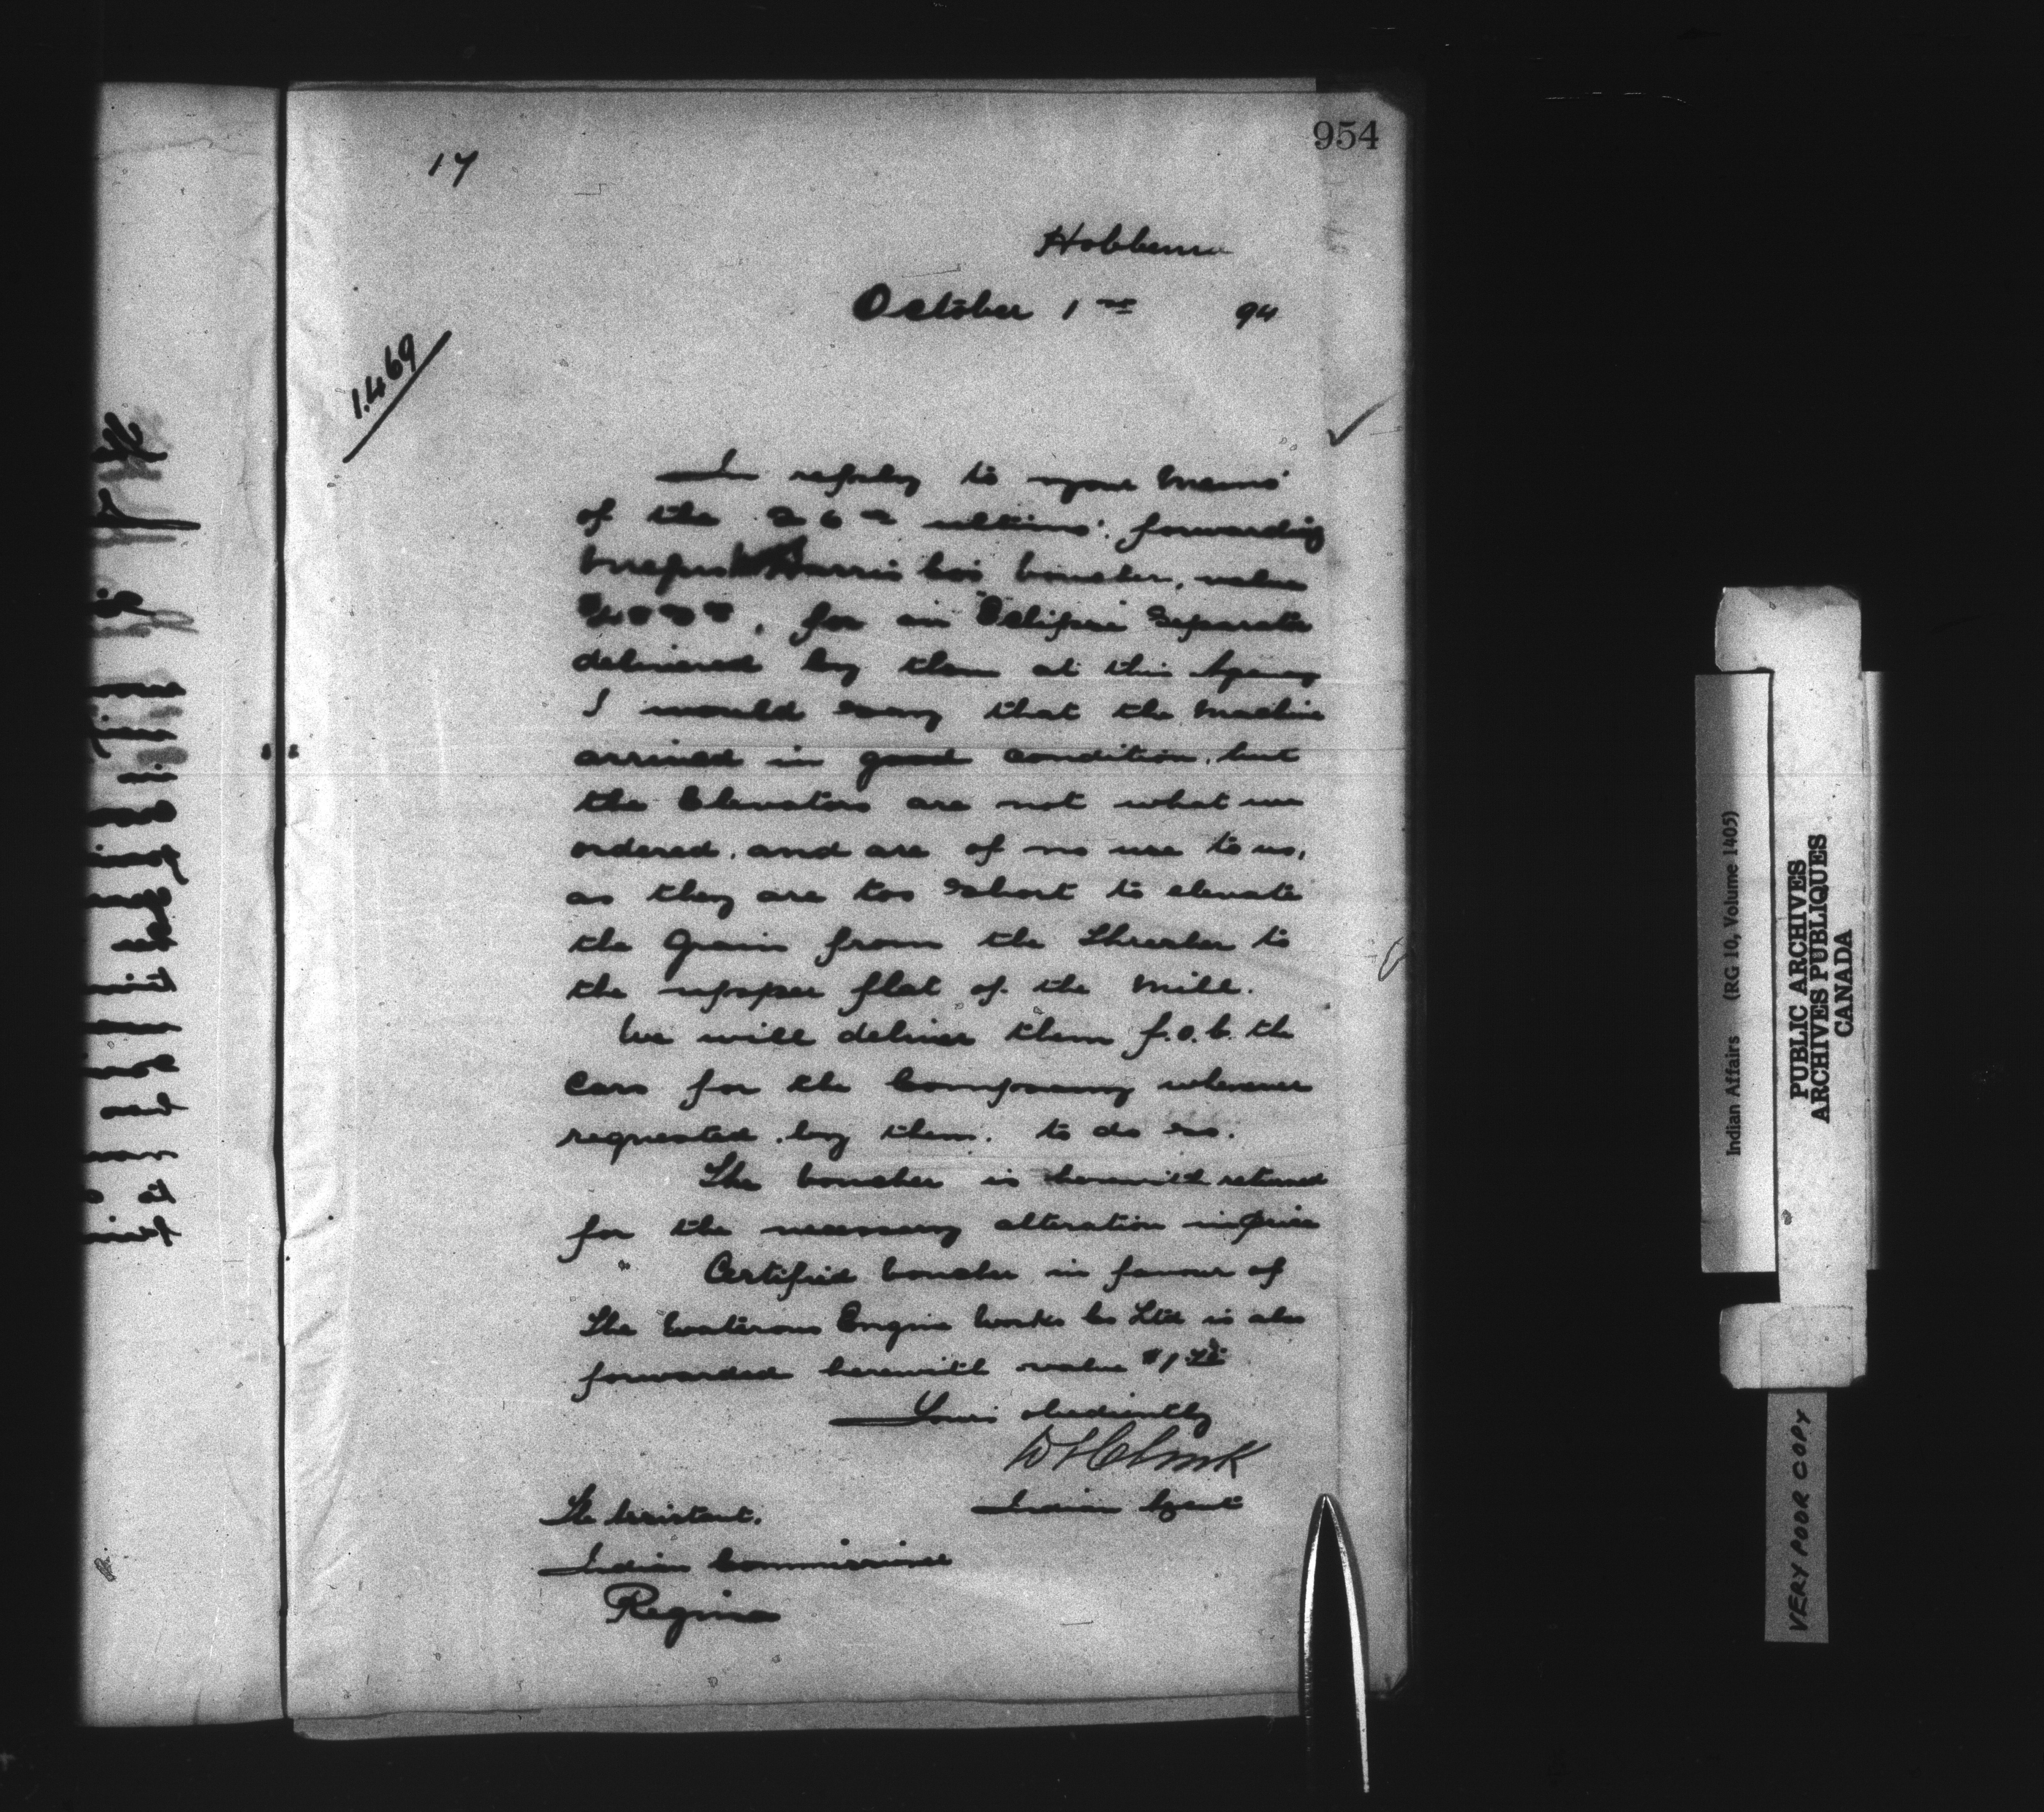 954
17
Hobbema
October 1st 94
1.469
In reply to your Memo
of the 26th ultimo: forwarding
Harris Co's Voucher, value
for an Eclipse Separator
delivered by them at this Agency
I would say that the Machine
arrived in good condition, but
the Elevators are not what we
ordered, and are of no use to us,
as they are too short to elevate
the Grain from the Thresher to
the upper flat of the Mill.
We will deliver them f.o.b. the
Cars for the Company whenever
requested by them to do so.
The Voucher is herewith returned
for the necessary alteration in price
Certified Voucher in favour of
The Waterous Engine Works Co Ltd is also
forwarded herewith value $1
Yours obediently
Indian Agent
The Assistant.
Indian Commissioner
Regina
Indian Affairs (RG 10, Volume 1405)
PUBLIC ARCHIVES
ARCHIVES PUBLIQUES
CANADA
VERY POOR COPY